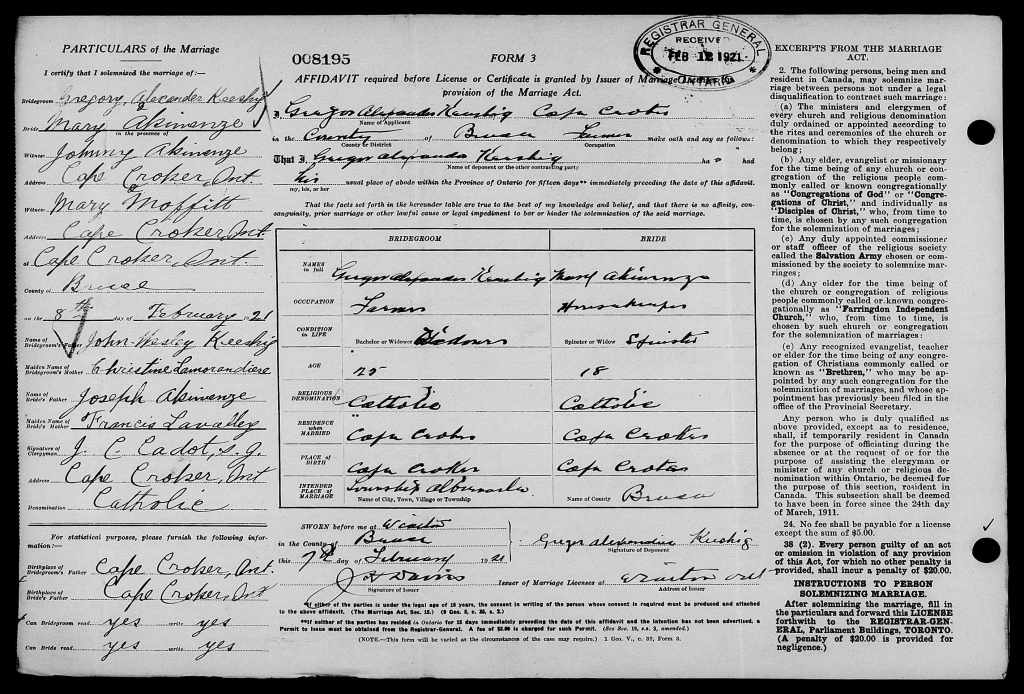 PARTICULARS of the Marriage
I certify that I solemnized the marriage of:—
Bridegroom Gregory Alexander Keeshig
Bride Mary Akiwenze
in the presence of
Witness Johnny Akiwenze
Address Cape Croker, Ont.
Witness Mary Moffitt
Address Cape Croker, Ont
at Cape Croker, Ont.
County of Bruce
on the 8th day of February 1921
Name of Bridegroom's Father John-Wesley Keeshig
Maiden Name of Bridegroom's Mother Christine Lamorandiere
Name of Bride's Father Joseph Akiwenze
Maiden Name of Bride's Mother Francis Lavalley
Signature of Clergyman J. C. Cadot, S.J.
Address Cape Croker, Ont
Denomination Catholic
For statistical purposes, please furnish the following information:—
Birthplace of Bridegroom's Father Cape Croker, Ont.
Birthplace of Bride's Father Cape Croker, Ont
Can Bridegroom read yes write yes
Can Bride read yes write yes
008195
FORM 3
REGISTRAR GENERAL
RECEIVED
FEB 12 1921
ONTARIO
AFFIDAVIT required before License or Certificate is granted by Issuer of Marriage Licenses
provision of the Marriage Act.
I, Gregor Alexander Keeshig Cape Croker
Name of Applicant
in the County of Bruce Farmer make oath and say as follows:
County or District Occupation
That I Gregor Alexander Keeshig ha had
Name of deponent or the other contracting party
his usual place of abode within the Province of Ontario for fifteen days** immediately preceding the date of this affidavit.
my, his, or her
That the facts set forth in the hereunder table are true to the best of my knowledge and belief, and that there is no affinity, con-
sanguinity, prior marriage or other lawful cause or legal impediment to bar or hinder the solemnization of the said marriage.
BRIDEGROOM BRIDE
NAMES in full Gregor Alexander Keeshig Mary Akiwenze
OCCUPATION Farmer Housekeeper
CONDITION in LIFE Bachelor or Widower Widower Spinster or Widow Spinster
AGE 25 18
RELIGIOUS DENOMINATION Catholic Catholic
RESIDENCE when MARRIED Cape Croker Cape Croker
PLACE OF BIRTH Cape Croker Cape Croker
INTENDED PLACE of MARRIAGE Township Albemarle Bruce
Name of City, Town, Village or Township Name of County
SWORN before me at Wiarton
in the County of Bruce
this 7th day of February 1921
Gregor Alexander Keeshig
Signature of Deponent
Signature of Issuer
Issuer of Marriage Licenses at Wiarton Ont
Address of Issuer
*If either of the parties is under the age of 18 years, the consent in writing of the person whose consent is required must be produced and attached
to the above affidavit. (The Marriage Act, Sec. 15.) (9 Geo. 5, c. 35, s. 2.)
**If neither of the parties has resided in Ontario for 15 days immediately preceding the date of this affidavit and the intention has not been advertised, a
Permit to issue must be obtained from the Registrar-General. A fee of $2.00 is charged for such Permit.
(NOTE.—This form will be varied at the circumstances of the case may require.) 1 Geo. V., c. 32, Form 3.
EXCERPTS FROM THE MARRIAGE
ACT.
2. The following persons, being men and
resident in Canada, may solemnize mar-
riage between persons not under a legal
disqualification to contract such marriage:
(a) The ministers and clergymen of
every church and religious denomination
duly ordained or appointed according to
the rites and ceremonies of the church or
denomination to which they respectively
belong;
(b) Any elder, evangelist or missionary
for the time being of any church or con-
gregation of the religious people com-
monly called or known congregationally
as "Congregations of God" or "Congre-
gations of Christ," and individually as
"Disciples of Christ," who, from time to
time, is chosen by any such congregation
for the solemnization of marriages;
(c) Any duly appointed commissioner
or staff officer of the religious society
called the Salvation Army chosen or com-
missioned by the society to solemnize mar-
riages;
(d) Any elder for the time being of
the church or congregation of religious
people commonly called or known congre-
gationally as "Farringdon Independent
Church," who, from time to time, is
chosen by such church or congregation
for the solemnization of marriages;
(e) Any recognized evangelist, teacher
or elder for the time being of any con-
gregation of Christians commonly called
or known as "Brethren," who may be ap-
pointed by any such congregation for the
solemnization of marriages, and whose ap-
pointment has previously been filed in the
office of the Provincial Secretary.
Any person who is duly qualified as
above provided, except as to residence,
shall, if temporarily resident in Canada
for the purpose of officiating during the
absence or at the request of or for the
purpose of assisting the clergyman or
minister of any church or religious de-
nomination within Ontario, be deemed for
the purpose of this section, resident in
Canada. This subsection shall be deemed
to have been in force since the 24th day
of March, 1911.
24. No fee shall be payable for a license
except the sum of $5.00.
38 (2). Every person guilty of an act
or omission in violation of any provision
of this Act, for which no other penalty is
provided, shall incur a penalty of $20.00.
INSTRUCTIONS TO PERSON
SOLEMNIZING MARRIAGE.
After solemnizing the marriage, fill in
the particulars and forward this LICENSE
forthwith to the REGISTRAR-GEN-
ERAL, Parliament Buildings, TORONTO.
(A penalty of $20.00 is provided for
negligence.)